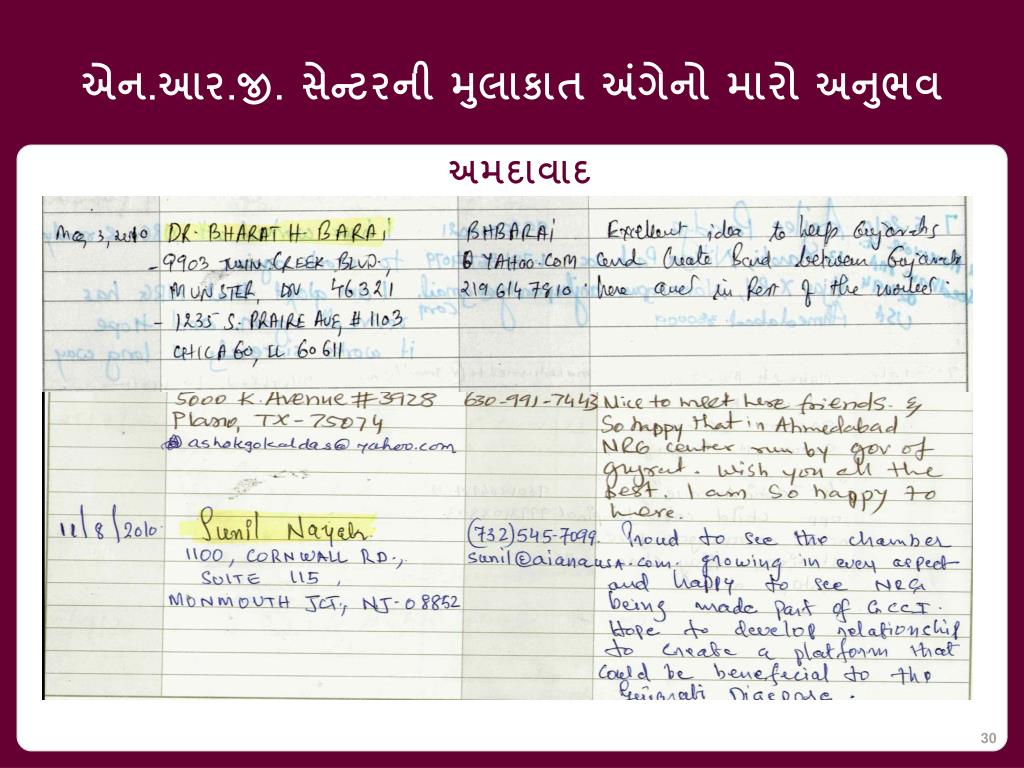 એન.આર.જી. સેન્ટરની મુલાકાત અંગેનો મારો અનુભવ
અમદાવાદ
3, 2010 DR. BHARAT H. BARAI BHBARAI Excellent idea to help Gujaratis
- 9903 TWIN CREEK BLVD., @ YAHOO.COM and Create Bond between Gujaratis
MUNSTER, IN 46321 219 614 7810 here and in Rest of the world.
- 1235 S. PRAIRE AVE, # 1103
CHICAGO, IL 60611
5000 K. Avenue # 3928 630-991-7443 Nice to meet here friends. &
Plano, TX - 75074 So happy that in Ahmedabad
ashokgokaldas@yahoo.com NRG center run by gov of
gujrat. Wish you all the
best. I am so happy to
here.
11/8/2010 Sunil Nayak (732)545-7099. Proud to see the chamber
1100, CORNWALL RD., sunil@aianausa.com. growing in every aspect
SUITE 115, and happy to see NRG
MONMOUTH JCT., NJ-08852 being made part of GCCI.
Hope to develop relationship
to create a platform that
could be beneficial to the
Gujarati Diaspora.
30